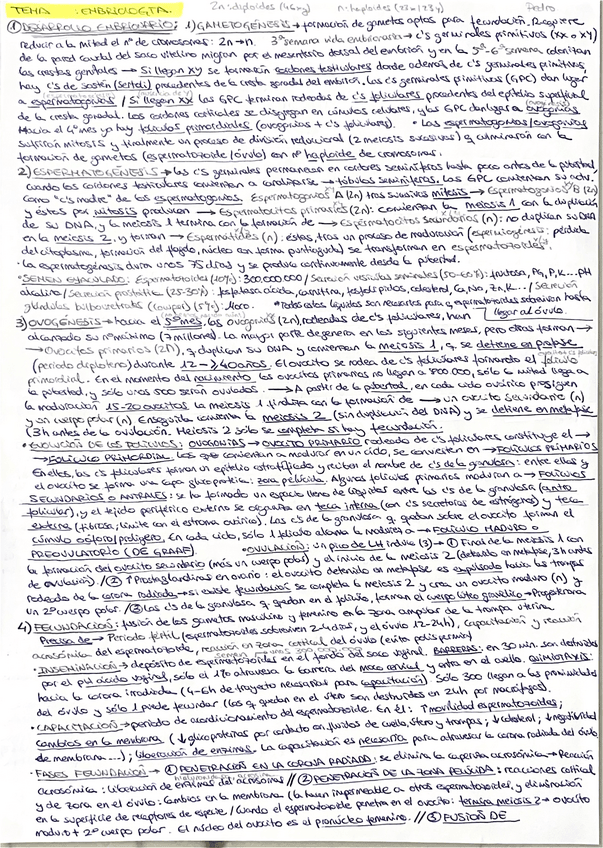 TEMA : EMBRIOLOGÍA. 2n = diploides (46xy) n = haploides (23x ó 23y) Pedro
① DESARROLLO EMBRIONARIO: 1) GAMETOGÉNESIS → formación de gametos aptos para fecundación. Requiere
reducir a la mitad el nº de cromosomas: 2n → n. 3ª semana vida embrionaria → c's germinales primitivas (xx o xy)
de la pared caudal del saco vitelino migran por el mesenterio dorsal del embrión y en la 5ª-6ª semana colonizan
las crestas genitales → Si llegan XY se formarán cordones testiculares donde además de c's germinales primitivas,
hay c's de sostén (sertoli) procedentes de la cresta gonadal del embrión. Las c's germinales primitivas (GPC) dan lugar
a espermatogonias / Si llegan XX las GPC terminan rodeadas de c's foliculares, procedentes del epitelio superficial
de la cresta gonadal. Los cordones corticales se disgregan en cúmulos celulares, y las GPC dan lugar a ovogonias
Hacia el 4º mes ya hay folículos primordiales (ovogonias + c's foliculares). • Las espermatogonias/ovogonias
sufrirán mitosis y finalmente un proceso de división reduccional (2 meiosis sucesivas) q culminarán con la
formación de gametos (espermatozoide/óvulo) con nº haploide de cromosomas.
2) ESPERMATOGÉNESIS → las c's germinales permanecen en cordones seminíferos hasta poco antes de la pubertad,
cuando los cordones testiculares comienzan a canalizarse → túbulos seminíferos. Las GPC comienzan su activ.
como "c's madre" de las espermatogonias. Espermatogonias A (2n) tras sucesivas mitosis → Espermatogonias B (2n)
y éstas por mitosis producen → Espermatocitos primarios (2n): comienzan la meiosis 1 con la duplicación
de su DNA, y la meiosis 1 termina con la formación de → Espermatocitos secundarios (n): no duplican su DNA
en la meiosis 2, y forman → Espermátides (n): éstas, tras un proceso de maduración (espermiogénesis: pérdida
del citoplasma, formación del flagelo, núcleo con forma puntiaguda) se transforman en espermatozoides.
• La espermatogénesis dura unos 75 días y se produce continuamente desde la pubertad.
• SEMEN EYACULADO: Espermatozoides (10%): 300.000.000 / Secreción vesículas seminales (50-60%): fructosa, PG, P, K... pH
alcalino / Secreción prostática (25-30%): fosfatasa ácida, carnitina, fosfolípidos, calcio, Ca, Na, Zn, K... / Secreción
glándulas bulbouretrales (Cowper) (5%): Claro. • Todos estos líquidos son necesarios para q espermatozoides sobrevivan hasta
llegar al óvulo.
3) OVOGÉNESIS → hacia el 5º mes, las ovogonias (2n), rodeadas de c's foliculares, han
alcanzado su nº máximo (7 millones). La mayor parte degenera en los siguientes meses, pero otras forman →
→ Ovocitos primarios (2n), q duplican su DNA y comienzan la meiosis 1, q se detiene en profase
(período diploteno) durante 12 – > 40 años. El ovocito se rodea de c's foliculares formando el folículo
primordial. En el momento del nacimiento los ovocitos primarios no llegan a 800.000, sólo la mitad llega a
la pubertad, y sólo unos 500 serán ovulados. → A partir de la pubertad, en cada ciclo ovárico prosiguen
la maduración 15-20 ovocitos la meiosis 1 finaliza con la formación de → un ovocito secundario (n)
y un cuerpo polar (n) Enseguida comienza la meiosis 2 (sin duplicación del DNA) y se detiene en metafase
(3h antes de la ovulación. Meiosis 2 sólo se completa si hay fecundación.
• EVOLUCIÓN DE LOS FOLÍCULOS: OVOGONIAS → OVOCITO PRIMARIO rodeado de c's foliculares constituye el →
→ FOLÍCULO PRIMORDIAL. Los que comienzan a madurar en un ciclo, se convierten en → FOLÍCULOS PRIMARIOS
En ellos, las c's foliculares forman un epitelio estratificado y reciben el nombre de c's de la granulosa: entre ellas y
el ovocito se forma una capa glucoproteica: zona pelúcida. Algunos folículos primarios maduran a → FOLÍCULOS
SECUNDARIOS O ANTRALES: se ha formado un espacio lleno de líquidos entre las c's de la granulosa (antro
folicular), y el tejido periférico externo se organiza en teca interna (con c's secretoras de estrógenos) y teca
externa (fibrosa, límite con el estroma ovárico). Las c's de la granulosa q quedan sobre el ovocito forman el
cúmulo oóforo/prolígero. En cada ciclo, sólo 1 folículo alcanza la madurez → FOLÍCULO MADURO O
PREOVULATORIO (DE GRAAF). • OVULACIÓN: un pico de LH induce (3) → ① Final de la meiosis 1 con
la formación del ovocito secundario (más un cuerpo polar) y el inicio de la meiosis 2 (detenido en metafase, 3h antes
de ovulación) / ② ↑ Prostaglandinas en ovario: el ovocito detenido en metafase es expulsado hacia las trompas
rodeado de la corona radiada → si existe fecundación se completa la meiosis 2 y crea un ovocito maduro (n) y
un 2º cuerpo polar. / ③ Las c's de la granulosa q quedan en el folículo, forman el cuerpo lúteo gravídico → Progesterona
4) FECUNDACIÓN: fusión de los gametos masculino y femenino en la zona ampular de la trompa uterina.
Precisa de → Período fértil (espermatozoides sobreviven 2-4 días, y el óvulo 12-24h), Capacitación y reacción
acrosómica del espermatozoide, reacción en zona cortical del óvulo (evita polispermia)
• INSEMINACIÓN → depósito de espermatozoides en el fondo del saco vaginal. BARRERAS: en 30 min. son destruidos
por el pH ácido vaginal, sólo el 1% atraviesa la barrera del moco cervical y entra en el cuello.
hacia la corona irradiada (4-6h de trayecto necesarias para capacitación) Sólo 300 llegan a las proximidades
del óvulo y sólo 1 puede fecundar (los q quedan en el útero son destruidos en 24h por macrófagos).
• CAPACITACIÓN → período de acondicionamiento del espermatozoide. En él: ↑ movilidad espermatozoides;
cambios en la membrana (↓ glicoproteínas por contacto con fluidos de cuello, útero y trompas; ↓ colesterol; ↓ negatividad
de membrana...); liberación de enzimas. La capacitación es necesaria para atravesar la corona radiada del óvulo.
• FASES FECUNDACIÓN → ① PENETRACIÓN EN LA CORONA RADIADA: se elimina la caperuza acrosómica → Reacción
acrosómica: liberación de enzimas del acrosoma // ② PENETRACIÓN DE LA ZONA PELÚCIDA: reacciones cortical
y de zona en el óvulo: cambios en la membrana (la hacen impermeable a otros espermatozoides, y eliminación
en la superficie de receptores de especie / Cuando el espermatozoide penetra en el ovocito: termina meiosis 2 → ovocito
maduro + 2º cuerpo polar. El núcleo del ovocito es el pronúcleo femenino. // ③ FUSIÓN DE